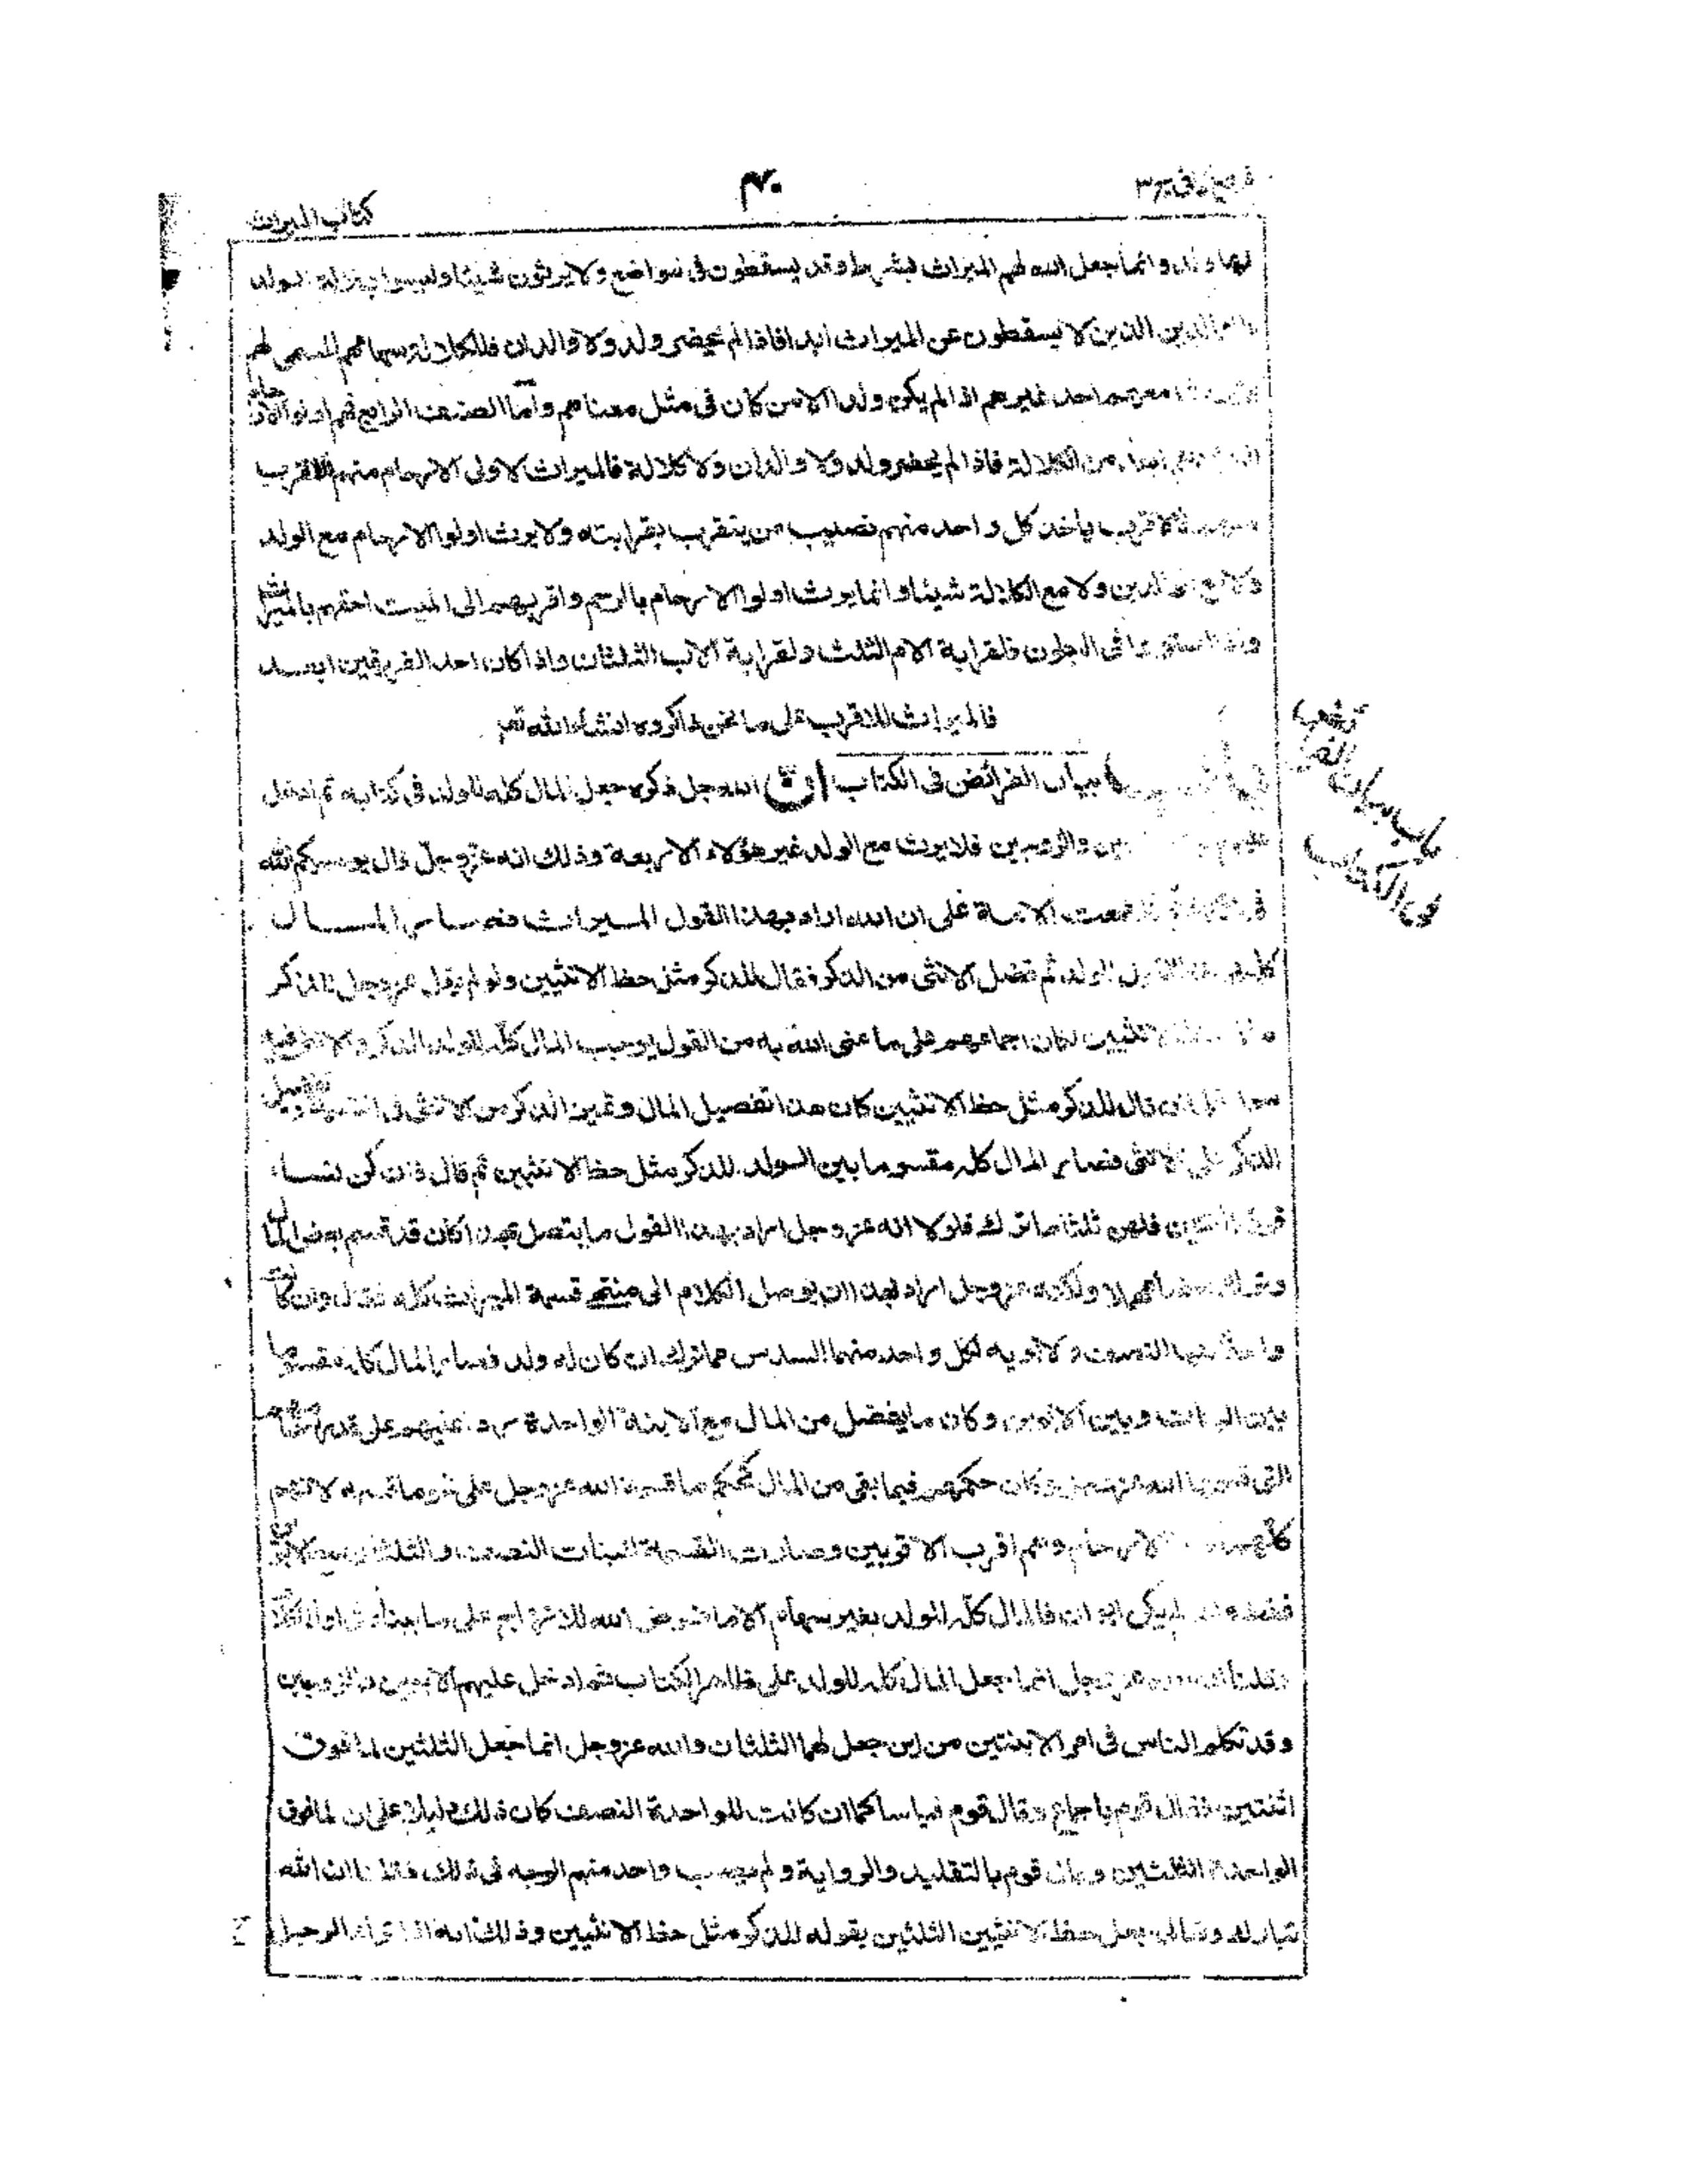 كتاب الميراث
٣٠
لها ولد وانما جعل الله لهم الميراث بشريطة وقد يسقطون فى مواضع ولا يرثون شيئا وليسوا بمنزلة الولد
الذين لا يسقطون عن الميراث ابدا فاذا لم يحضر ولد ولا والدان فللكلالة سهامهم المسمى لهم
معهم احد غيرهم اذا لم يكن ولد الا من كان فى مثل معناهم واما الصنف الرابع فهم اولوا الارحام
من الكلالة فاذا لم يحضر ولد ولا والدان ولا كلالة فالميراث لاولى الارحام منهم الاقرب
فالاقرب ياخذ كل واحد منهم نصيب من يتقرب بقرابته ولا يرث اولوا الارحام مع الولد
ولا مع الوالدين ولا مع الكلالة شيئا وانما يرث اولوا الارحام بالرحم واقربهم الى الميت احقهم بالميراث
واذا استووا فى البطون فلقرابة الام الثلث ولقرابة الاب الثلثان واذا كان احد الفريقين ابعد
فالميراث للاقرب على ما نحن ذاكروه انشاء الله تعم
بيان الفرائض فى الكتاب ان الله جل ذكره جعل المال كله للولد فى كتابه ثم ادخل
والزوجين فلا يرث مع الولد غير هؤلاء الاربعة وذلك انه عزوجل قال يوصيكم الله
الامة على ان الله اراد بهذا القول الميراث فصار المال
كله الولد ثم فصل الانثى من الذكر فقال للذكر مثل حظ الانثيين ولو لم يقل عزوجل للذكر
الانثيين لكان اجماعهم على ما عنى الله به من القول يوجب المال كله للولد الذكر والانثى فيه
قال للذكر مثل حظ الانثيين كان هذا تفصيل المال وتمييز الذكر من الانثى فى القسمة وتفضيل
الذكر على الانثى فصار المال كله مقسوما بين الولد للذكر مثل حظ الانثيين ثم قال فان كن نساء
فوق اثنتين فلهن ثلثا ما ترك فلولا انه عزوجل اراد بهذا القول ما يتصل بهذا كان قد قسم بعض المال
وترك بعضا مهملا ولكنه عزوجل اراد بهذا ان يوصل الكلام الى منتهى قسمة الميراث كله فقال وان كانت
واحدة فلها النصف ولابويه لكل واحد منهما السدس مما ترك ان كان له ولد فصار المال كله مقسوما
بين البنات وبين الابوين وكان ما يفضل من المال مع الابنة الواحدة ردا عليهم على قدر سهامهم
التى قسمها الله عزوجل وكان حكمهم فيما بقى من المال كحكم ما قسمه الله عزوجل على نحو ما قسمه لانهم
كلهم الارحام وهم اقرب الاقربين وصارت القسمة للبنات النصف والثلثان مع الابوين
لم يكن ابوان فالمال كله للولد بغير سهام الا ما فرض الله للازواج على ما بيناه فى اول الكلام
وقلنا ان الله عزوجل انما جعل المال كله للولد على ظاهر الكتاب ثم ادخل عليهم الابوين والزوجين
وقد تكلم الناس فى امر الابنتين من اين جعل لهما الثلثان والله عزوجل انما جعل الثلثين لما فوق
اثنتين فقال قوم باجماع وقال قوم قياسا كما ان كانت للواحدة النصف كان ذلك دليلا على ان لما فوق
الواحدة الثلثين وقال قوم بالتقليد والرواية ولم يصب واحد منهم الوجه فى ذلك فقلنا ان الله
تبارك وتعالى جعل حظ الانثيين الثلثين بقوله للذكر مثل حظ الانثيين وذلك انه اذا ترك الرجل
باب بيان
فى الكتاب